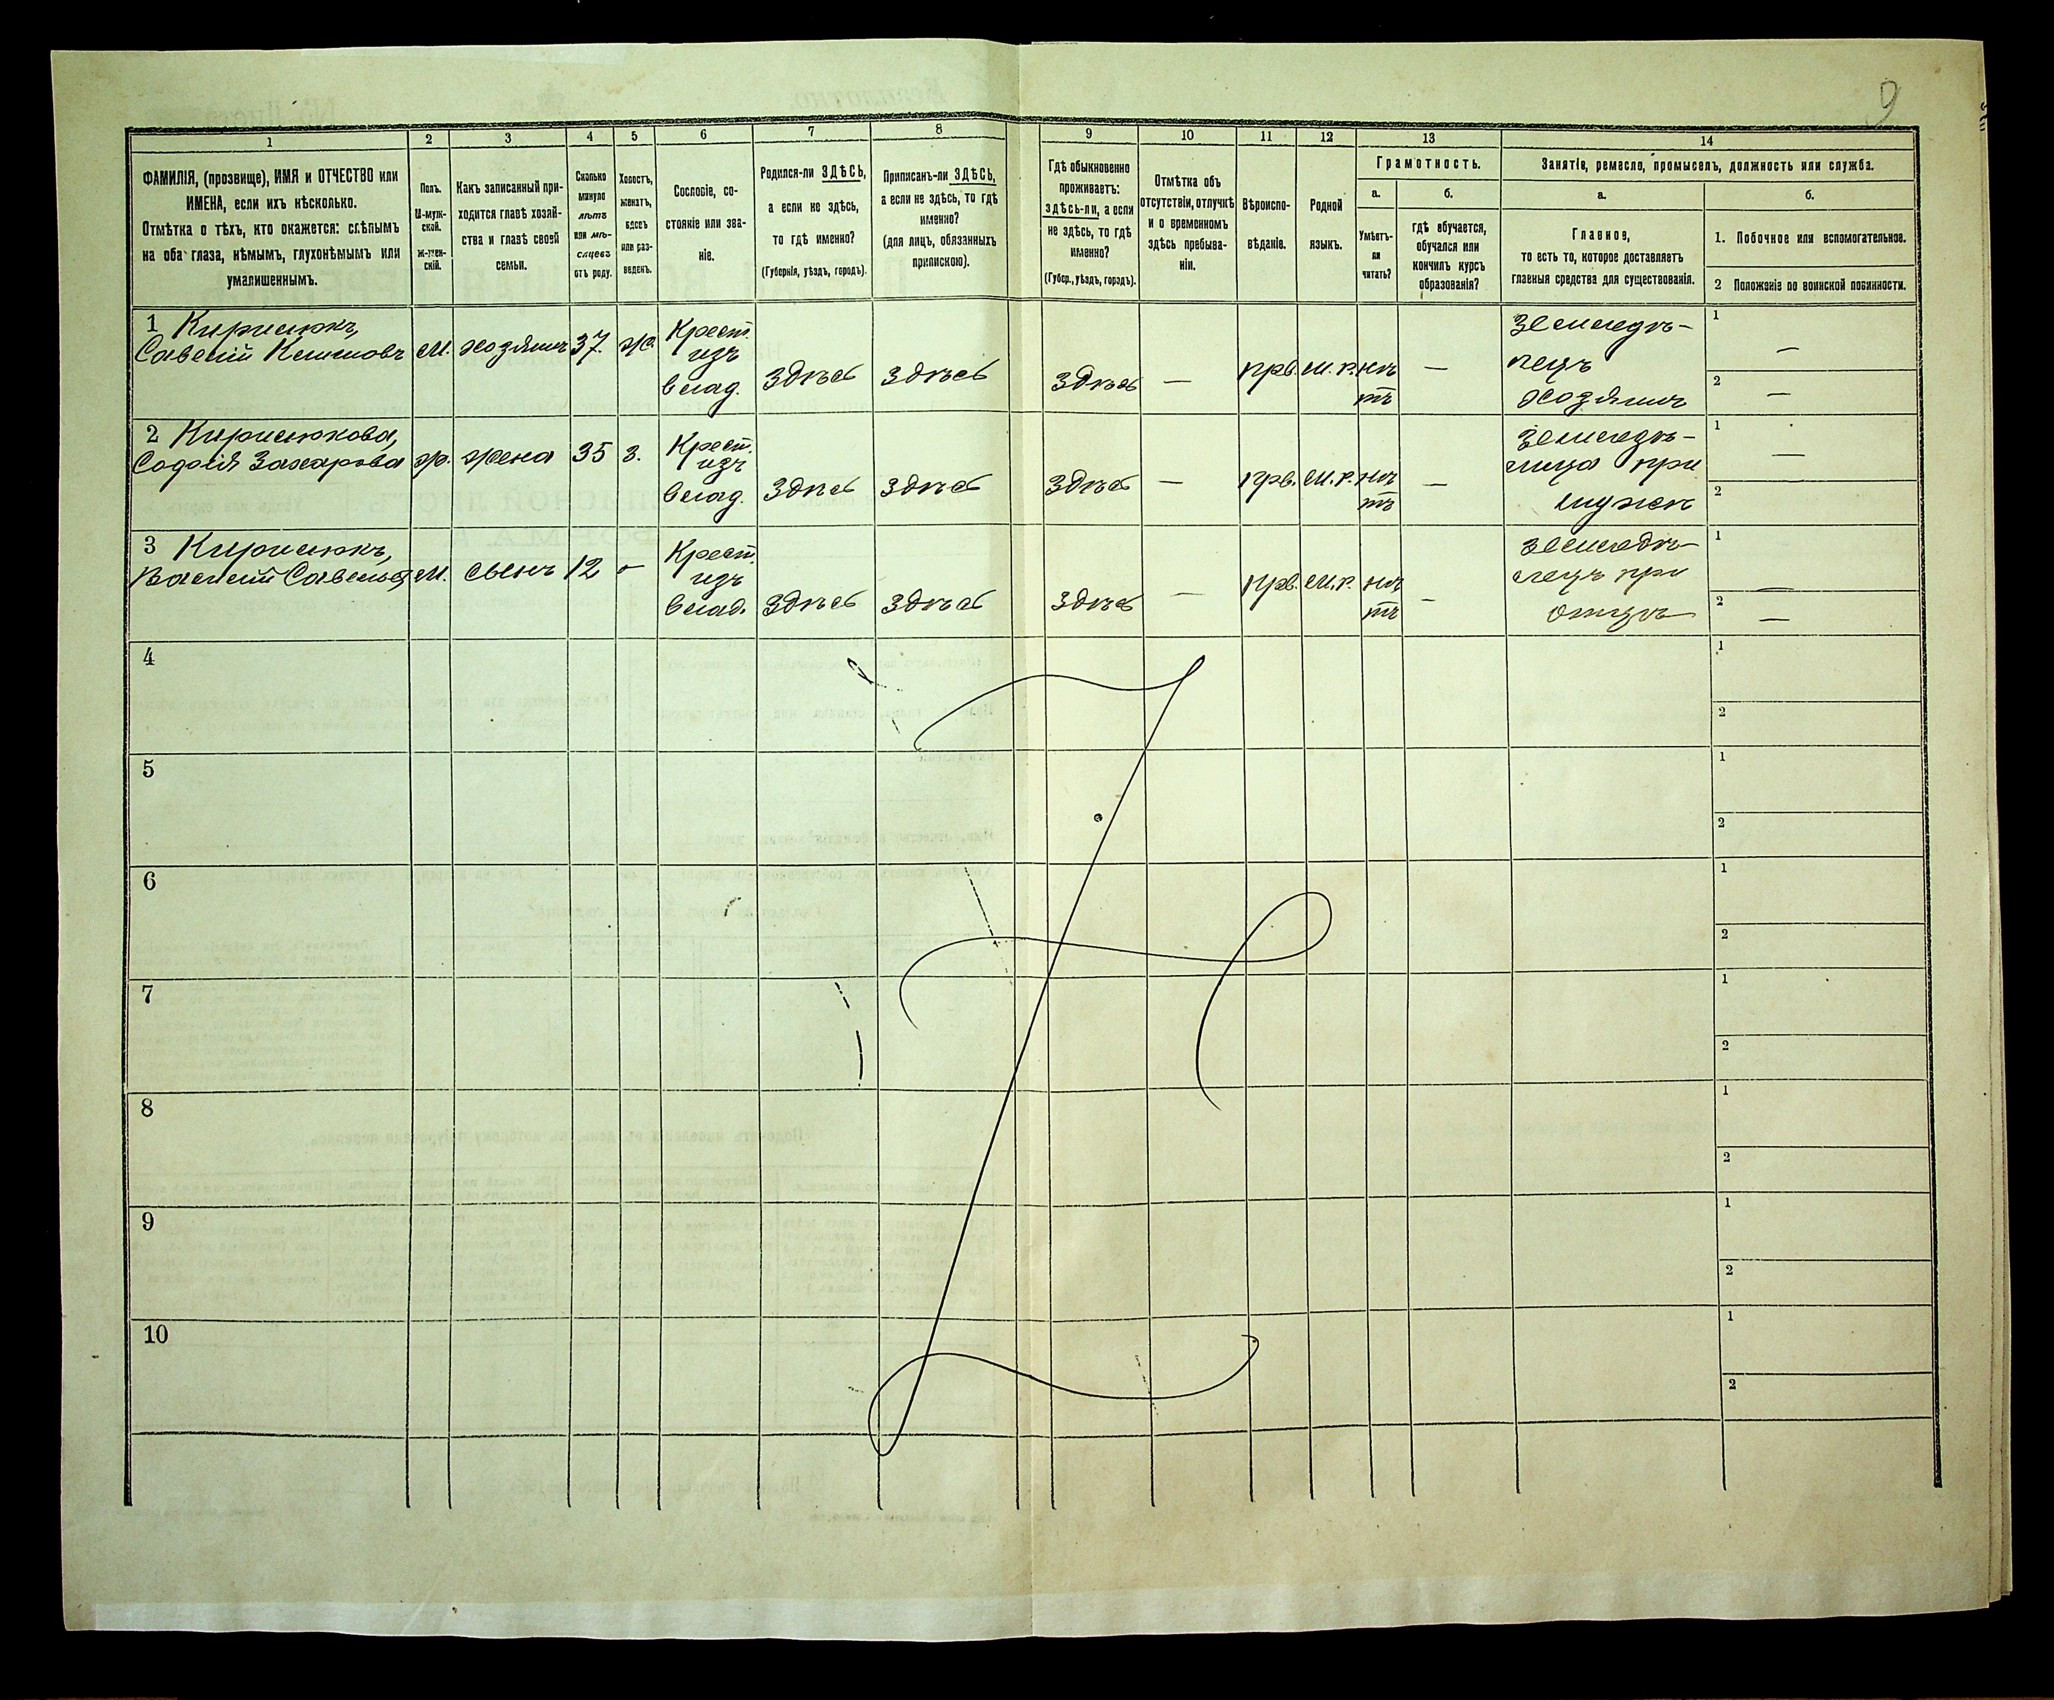 9
1 2 3 4 5 6 7 8 9 10 11 12 13 14
ФАМИЛІЯ, (прозвище), ИМЯ и ОТЧЕСТВО или
ИМЕНА, если ихъ нѣсколько.
Отмѣтка о тѣхъ, кто окажется: слѣпымъ
на оба глаза, нѣмымъ, глухонѣмымъ или
умалишеннымъ.
Полъ.
М-муж-
ской.
Ж-жен-
скій.
Какъ записанный при-
ходится главѣ хозяй-
ства и главѣ своей
семьи.
Сколько
минуло
лѣтъ
или мѣ-
сяцевъ
отъ роду.
Холостъ,
женатъ,
вдовъ
или раз-
веденъ.
Сословіе, со-
стояніе или зва-
ніе.
Родился-ли ЗДѢСЬ,
а если не здѣсь,
то гдѣ именно?
(Губернія, уѣздъ, городъ).
Приписанъ-ли ЗДѢСЬ,
а если не здѣсь, то гдѣ
именно?
(для лицъ, обязанныхъ
припискою).
Гдѣ обыкновенно
проживаетъ:
здѣсь-ли, а если
не здѣсь, то гдѣ
именно?
(Губер., уѣздъ, городъ).
Отмѣтка объ
отсутствіи, отлучкѣ
и о временномъ
здѣсь пребыва-
ніи.
Вѣроиспо-
вѣданіе.
Родной
языкъ.
Грамотность.
а.
Умѣетъ-
ли
читать?
б.
гдѣ обучается,
обучался или
кончилъ курсъ
образованія?
Занятіе, ремесло, промыселъ, должность или служба.
а.
Главное,
то есть то, которое доставляетъ
главныя средства для существованія.
б.
1. Побочное или вспомогательное.
2 Положеніе по воинской повинности.
1 Кирисюкъ,
Савелій
м. хозяинъ 37 ж.
Крест.
изъ
влад.
здѣсь здѣсь здѣсь — прв. м.р. нѣ
тъ
—
Земледѣ-
лецъ
хозяинъ
1 —
2 —
2 Кирисюкова,
Софія Захарова ж. жена 35 з.
Крест.
изъ
влад.
здѣсь здѣсь здѣсь — прв. м.р. нѣ
тъ
—
Земледѣ-
лица при
мужѣ
1 —
2
3 Кирисюкъ,
Василій Савельев м. сынъ 12 -
Крест.
изъ
влад.
здѣсь здѣсь здѣсь — прв. м.р. нѣ
тъ
—
Земледѣ-
лецъ при
отцѣ
1 —
2 —
4 1
2
5 1
2
6 1
2
7 1
2
8 1
2
9 1
2
10 1
2